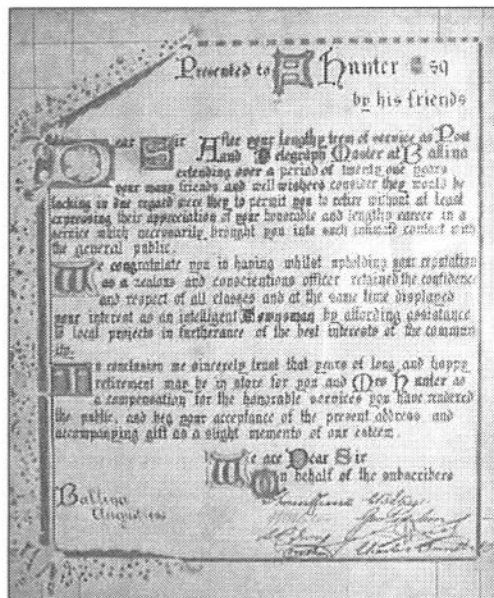 Presented to A Hunter Esq
by his friends
Dear Sir After your lengthy term of service as Post
and Telegraph Master at Ballina
extending over a period of twenty one years
your many friends and well wishers consider they would be
lacking in due regard were they to permit you to retire without at least
expressing their appreciation of your honorable and lengthy career in a
service which necessarily brought you into such intimate contact with
the general public.
We congratulate you in having whilst upholding your reputation
as a zealous and conscientious officer retained the confidence
and respect of all classes and at the same time displayed
your interest as an intelligent Townsman by affording assistance
to local projects in furtherance of the best interests of the commun
ity.
In conclusion we sincerely trust that years of long and happy
retirement may be in store for you and Mrs Hunter as
a compensation for the honorable services you have rendered
the public, and beg your acceptance of the present address and
accompanying gift as a slight memento of our esteem.
We are Dear Sir
On behalf of the subscribers
Ballina
August